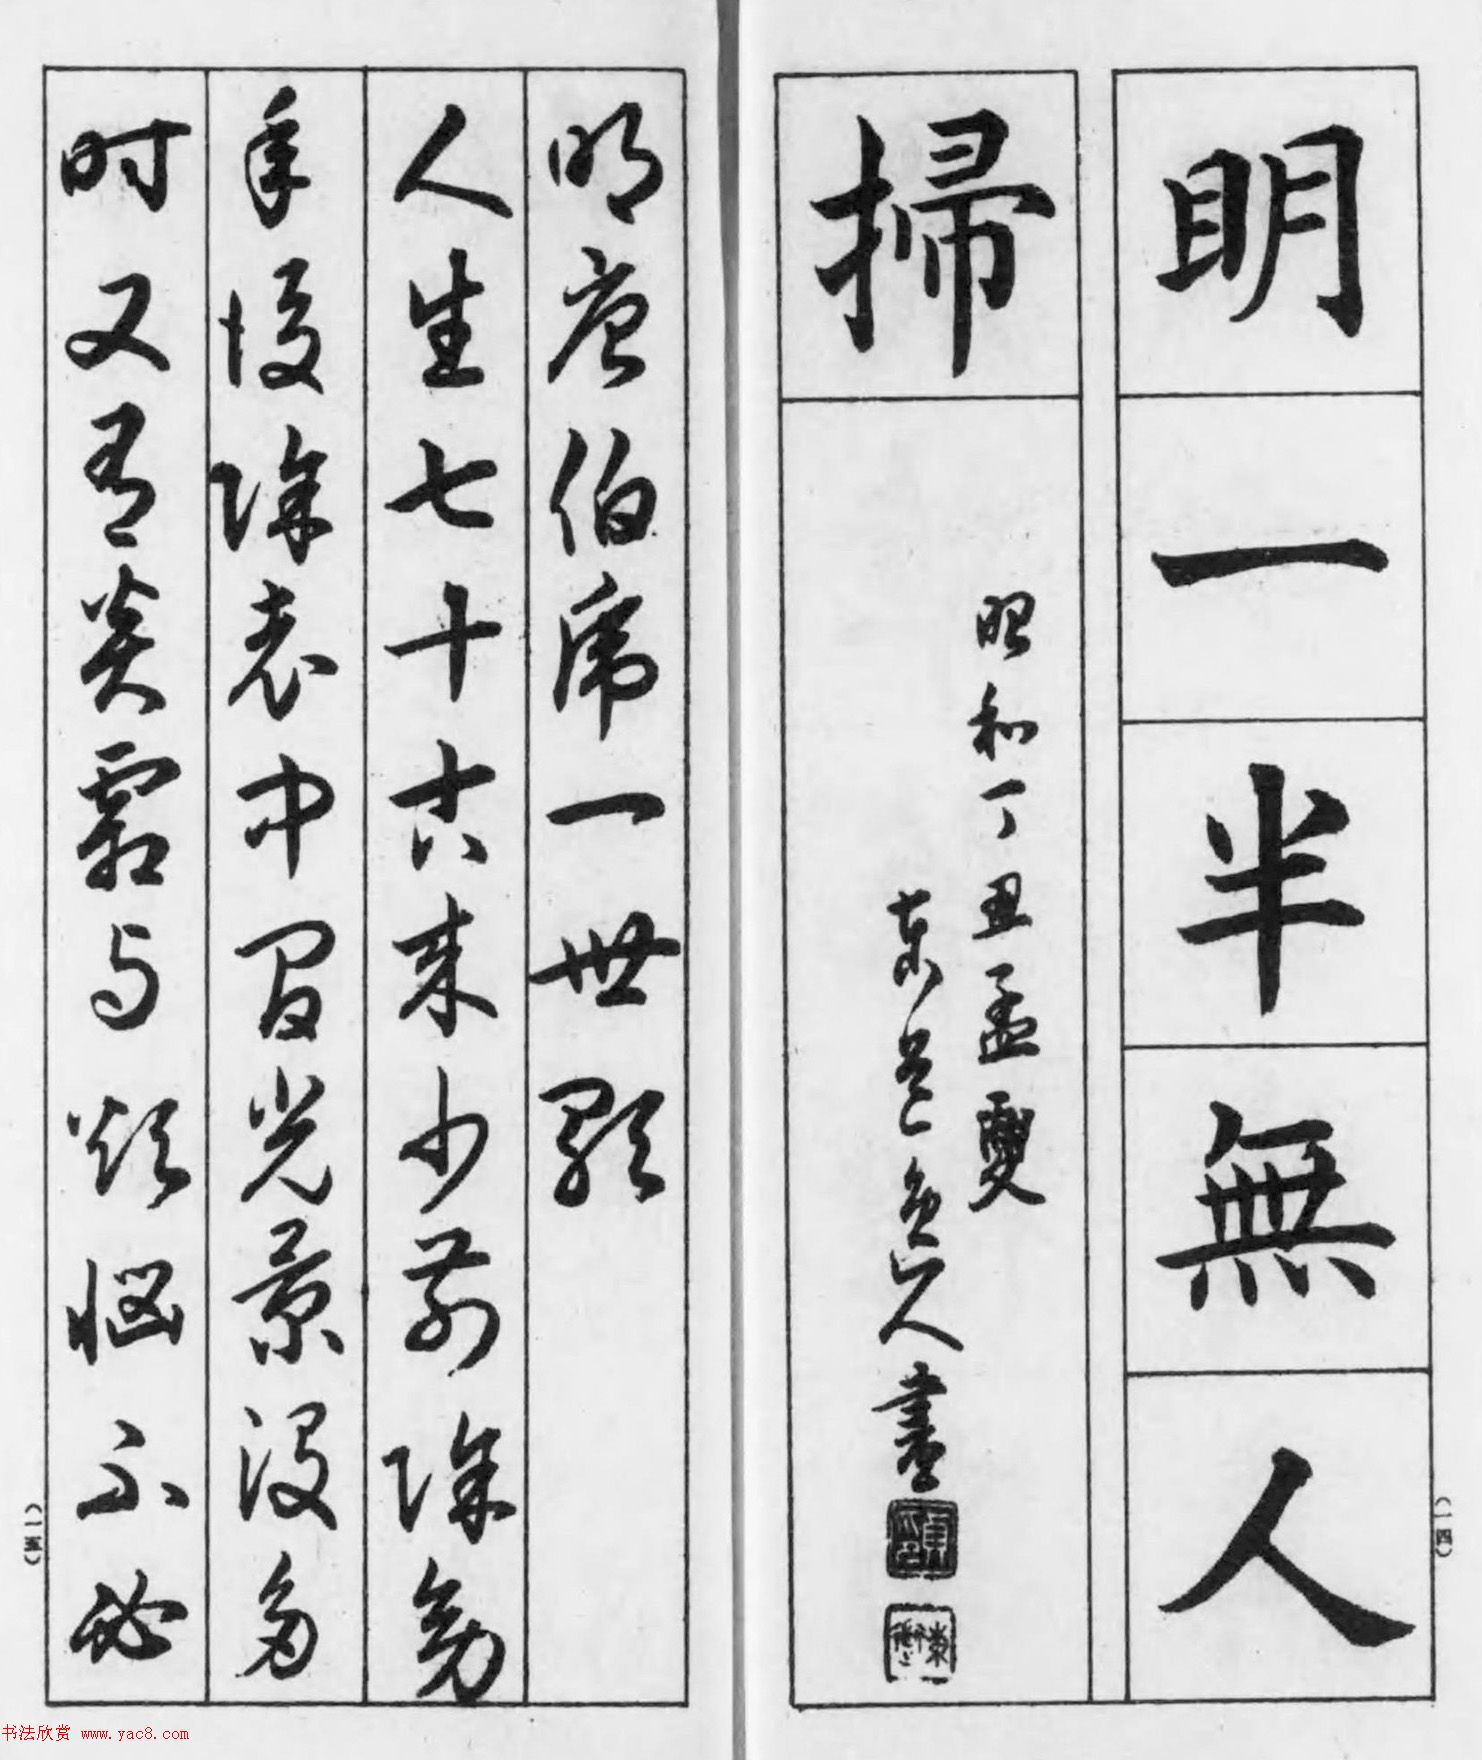 明一半無人
掃
昭和丁丑孟夏
人書
(一四)
明唐伯虎一世歌
人生七十古來少前除幼
年後除老中間光景沒多
时又有炎霜与煩惱不必
(一五)
书法欣赏 www.yac8.com